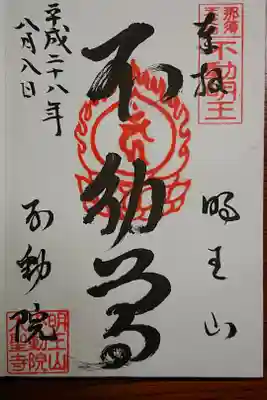 奉拝
那須
不動明王
明王山
不動尊
平成二十八年
八月八日
不動院
明王山
不動院
聖寺